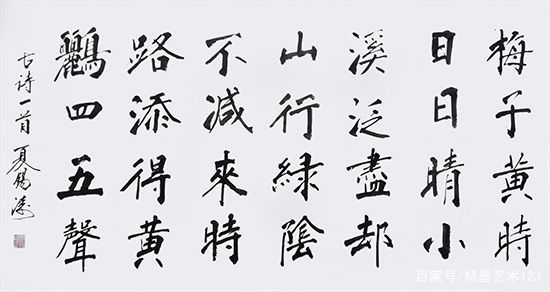 梅子黄時
日日晴小
溪泛盡却
山行緑陰
不減來時
路添得黄
鸝四五聲
古诗一首 夏锡
百家号/楮墨艺术123